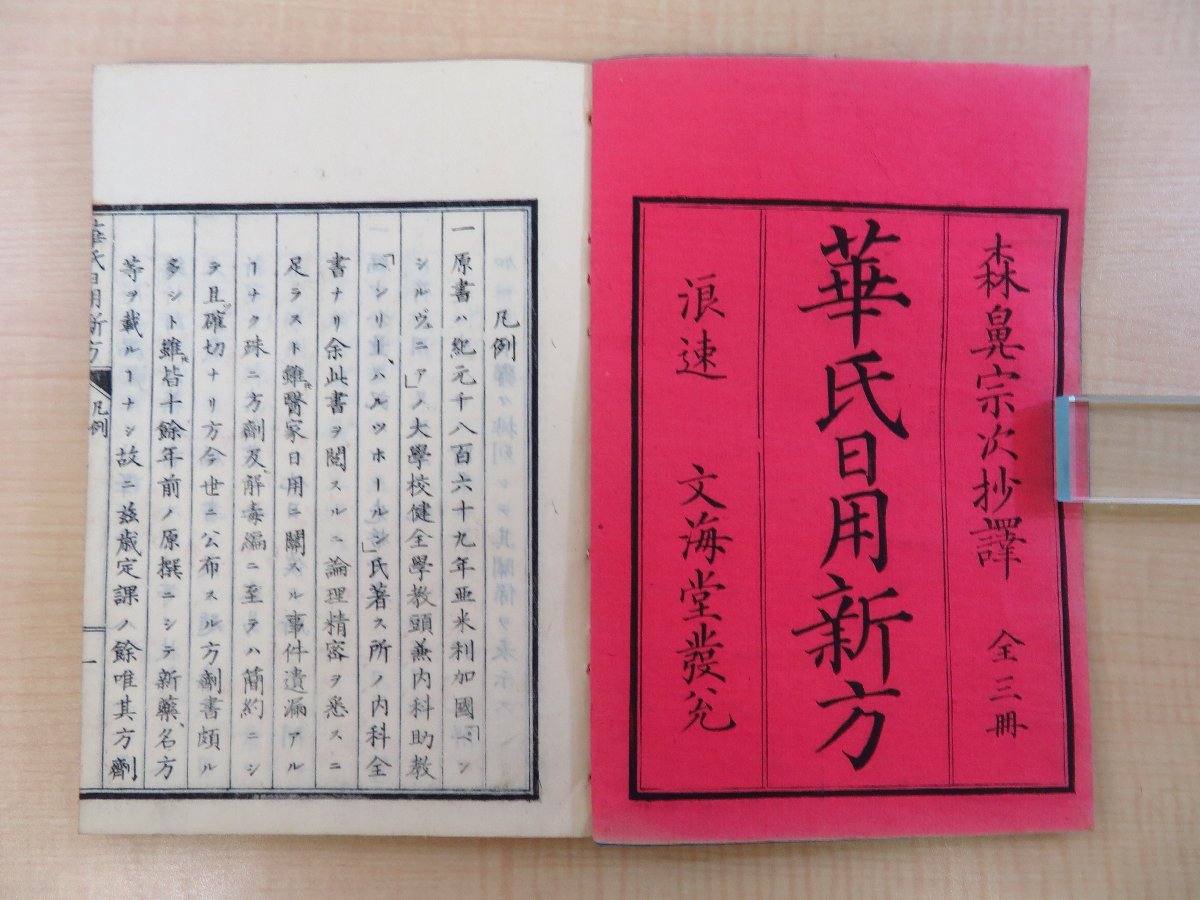 森鼻宗次抄譯 全三冊
華氏日用新方
浪速 文海堂發兌
凡例
一原書ハ紀元千八百六十九年亜米利加國「ペン
シルヴニア」ノ大學校健全學教頭兼内科助教
「ヘンリー、ハルツホールン」氏著ス所ノ内科全
書ナリ余此書ヲ閲スルニ論理精密ヲ悉スニ
足ラスト雖𪜈醫家日用ニ關スル事件遺漏アル
ヿナク殊ニ方劑及解毒編ニ至テハ簡約ニシ
テ且確切ナリ方今世ニ公布スル方劑書頗ル
多シト雖𪜈皆十餘年前ノ原撰ニシテ新藥、名方
等ヲ載ルヿナシ故ニ茲歳定課ノ餘唯其方劑
華氏日用新方 凡例 一